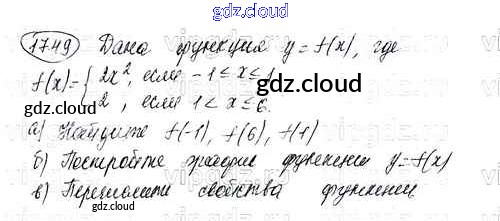 gdz.cloud
1749 Дана функция y=f(x), где
f(x)={ 2x², если -1≤x≤1
2, если 1<x≤6.
gdz.cloud gdz.cloud
а) Найдите f(-1), f(6), f(1)
б) Постройте график функции y=f(x)
в) Перечислите свойства функции
gdz.cloud